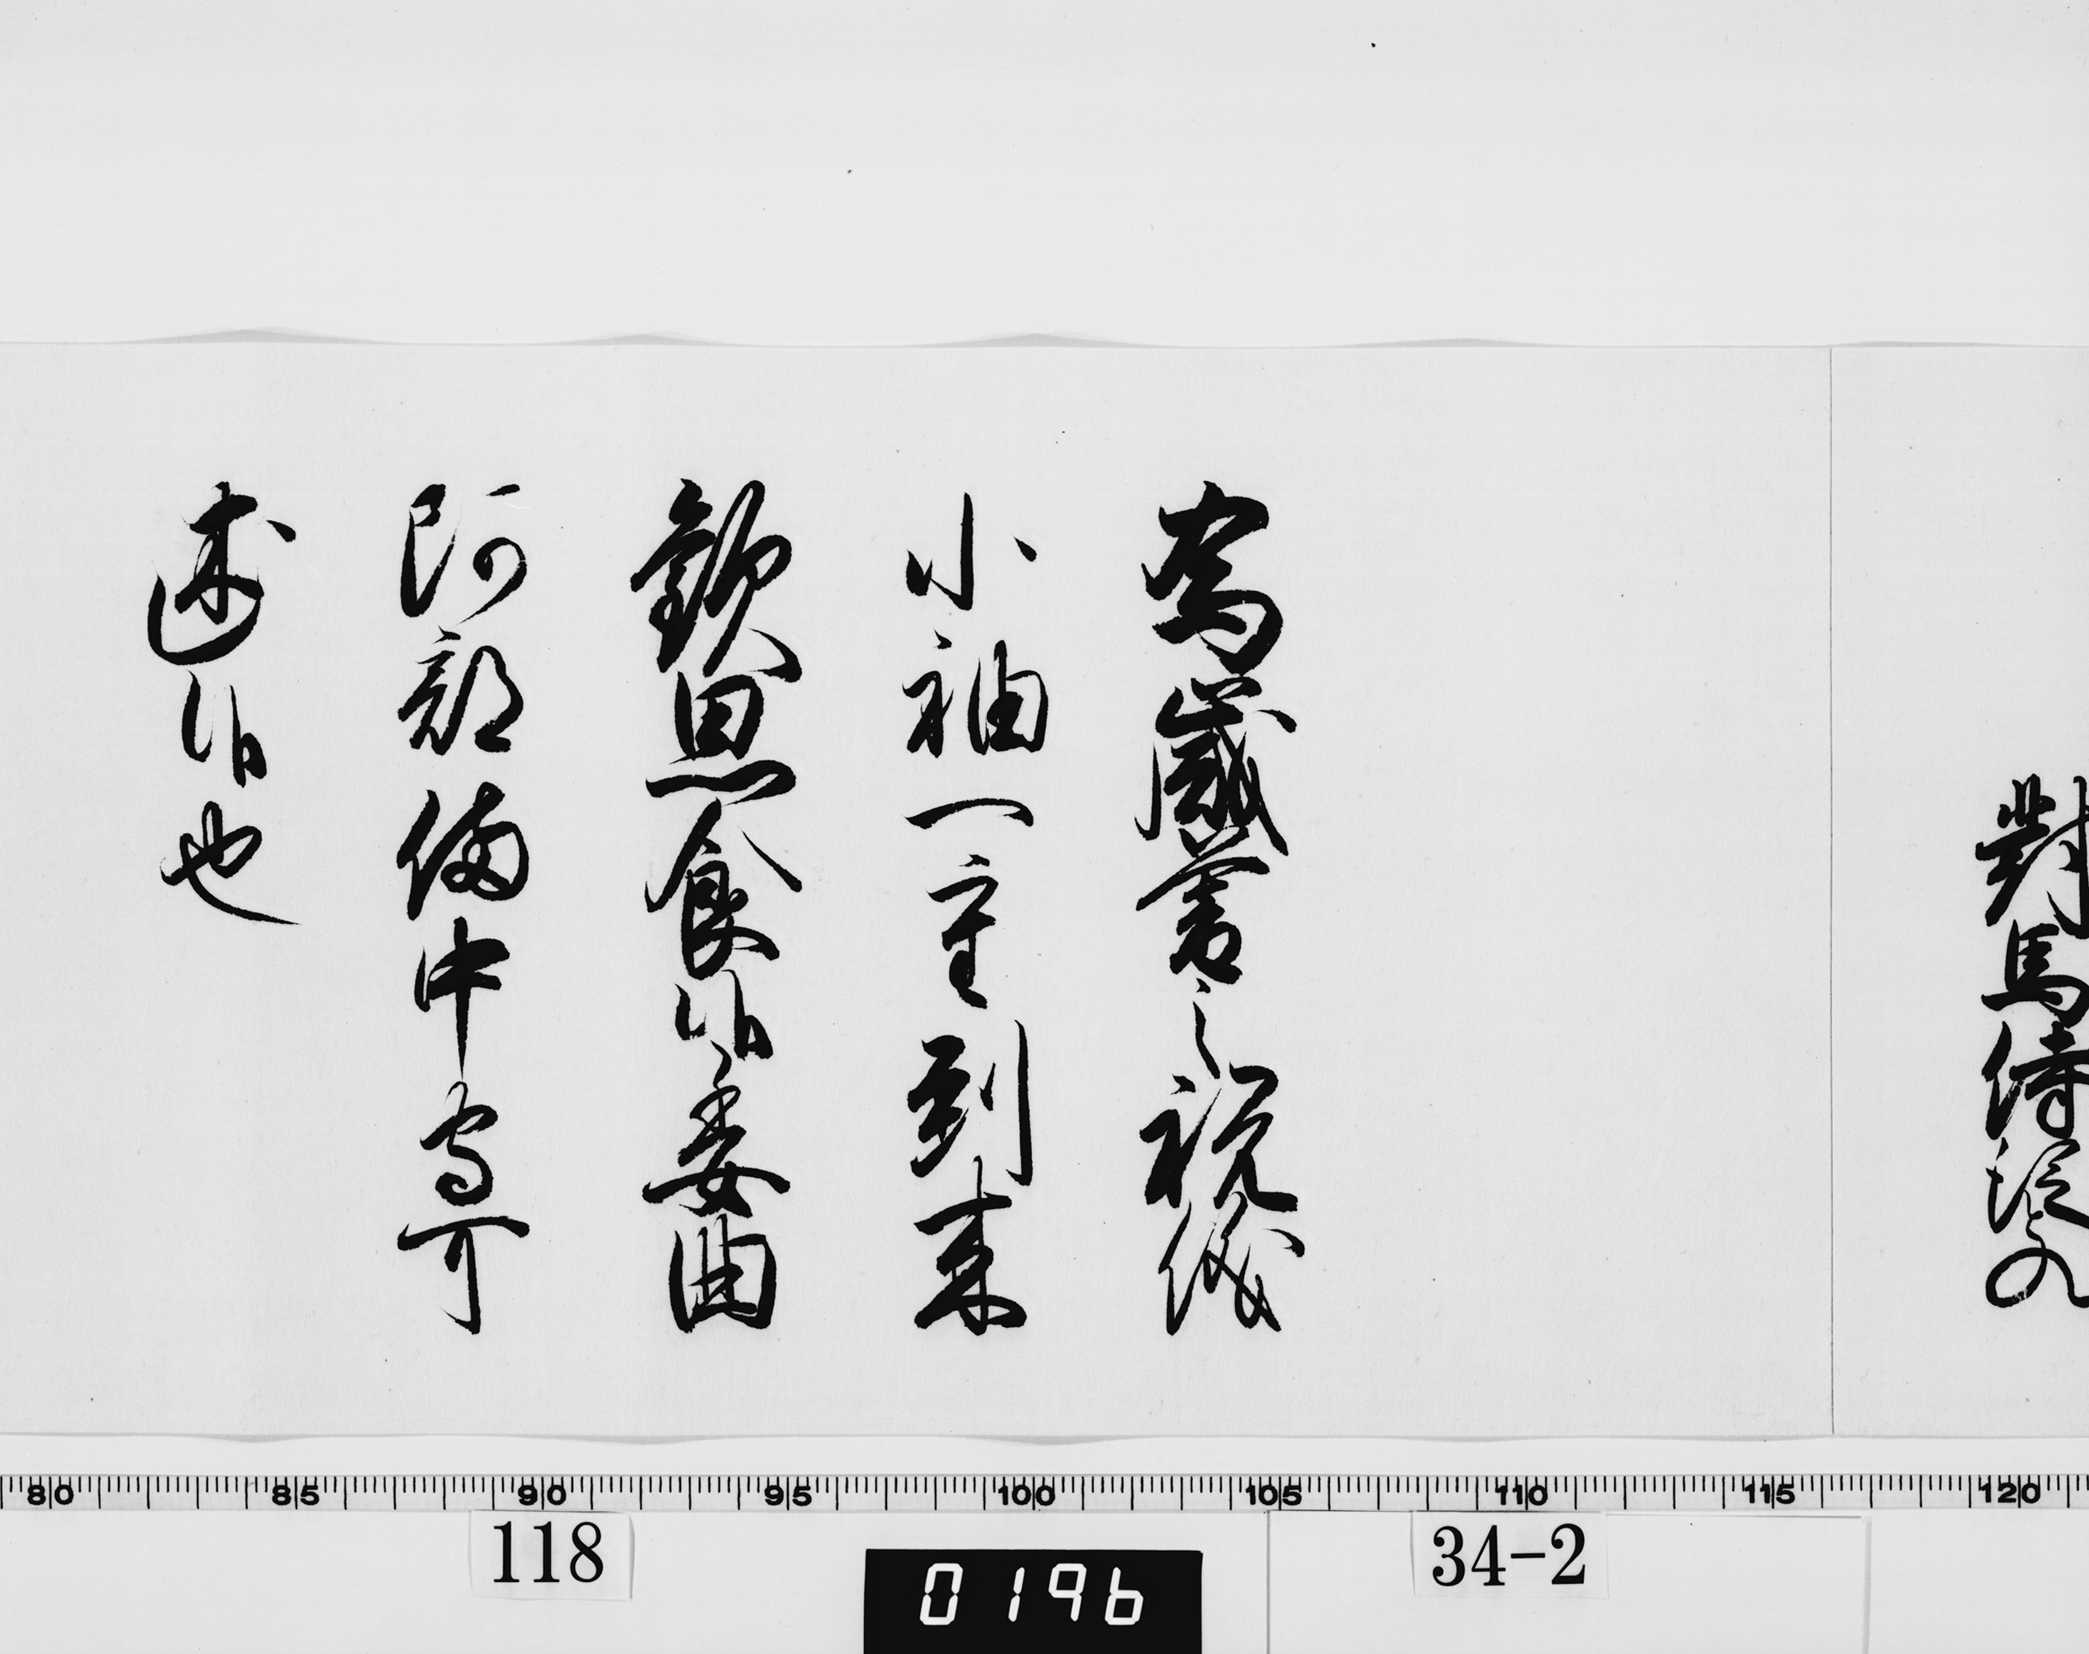 對馬侍従殿
為歳暮之祝儀
小袖一重到来
歓思食候委曲
阿部備中守可
述候也
80 85 90 95 100 105 110 115 120
118
0196
34-2